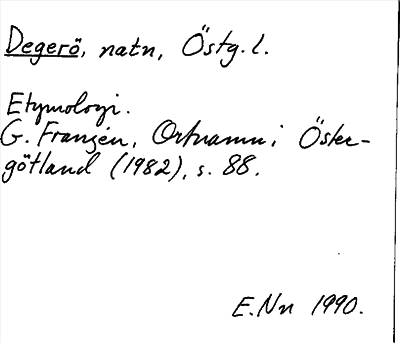 Degerö, natn, Östg. l.
Etymologi.
G. Franzén, Ortnamn i Öster-
götland (1982), s. 88.
E. Nn 1990.